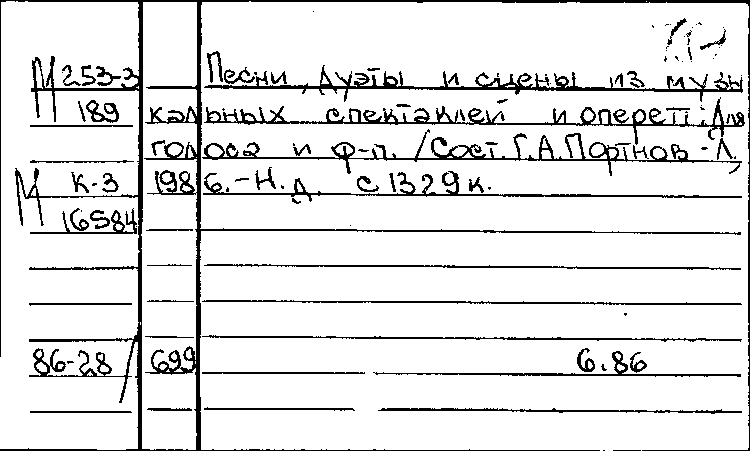 М 253-3 Песни, дуэты и сцены из музы
189 кальных спектаклей и оперетт: Для
голоса и ф-п. / Сост. Г.А. Портнов - Л,
М К-3 1986. - Н.д. с 1329 к.
16584
86-28/699 6.86